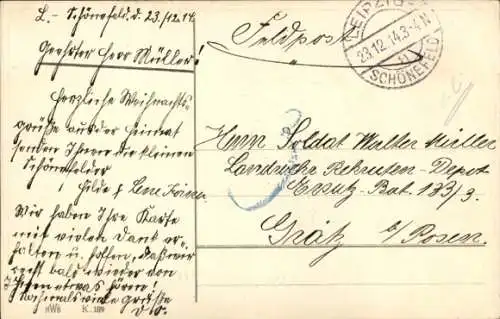 L.- Schönefeld, d. 23./12.14.
Geehrter Herr Müller!
Herzliche Weihnachts-
grüße aus der Heimat
senden Ihnen die kleinen
Schönefelder
Hilde & Lene
Wir haben Ihre Karte
mit vielen Dank er-
halten u. hoffen, daß wir
recht bald wieder von
Ihnen etwas hören!
Nochmals viele Grüße
D. O.
K. 189
Feldpost
LEIPZIG-
23.12.14.3-4N
SCHÖNEFELD
Herrn Soldat Walter Müller
Landwehr Rekruten-Depot
Ersatz-Bat. 133/3.
Grätz b/Posen.